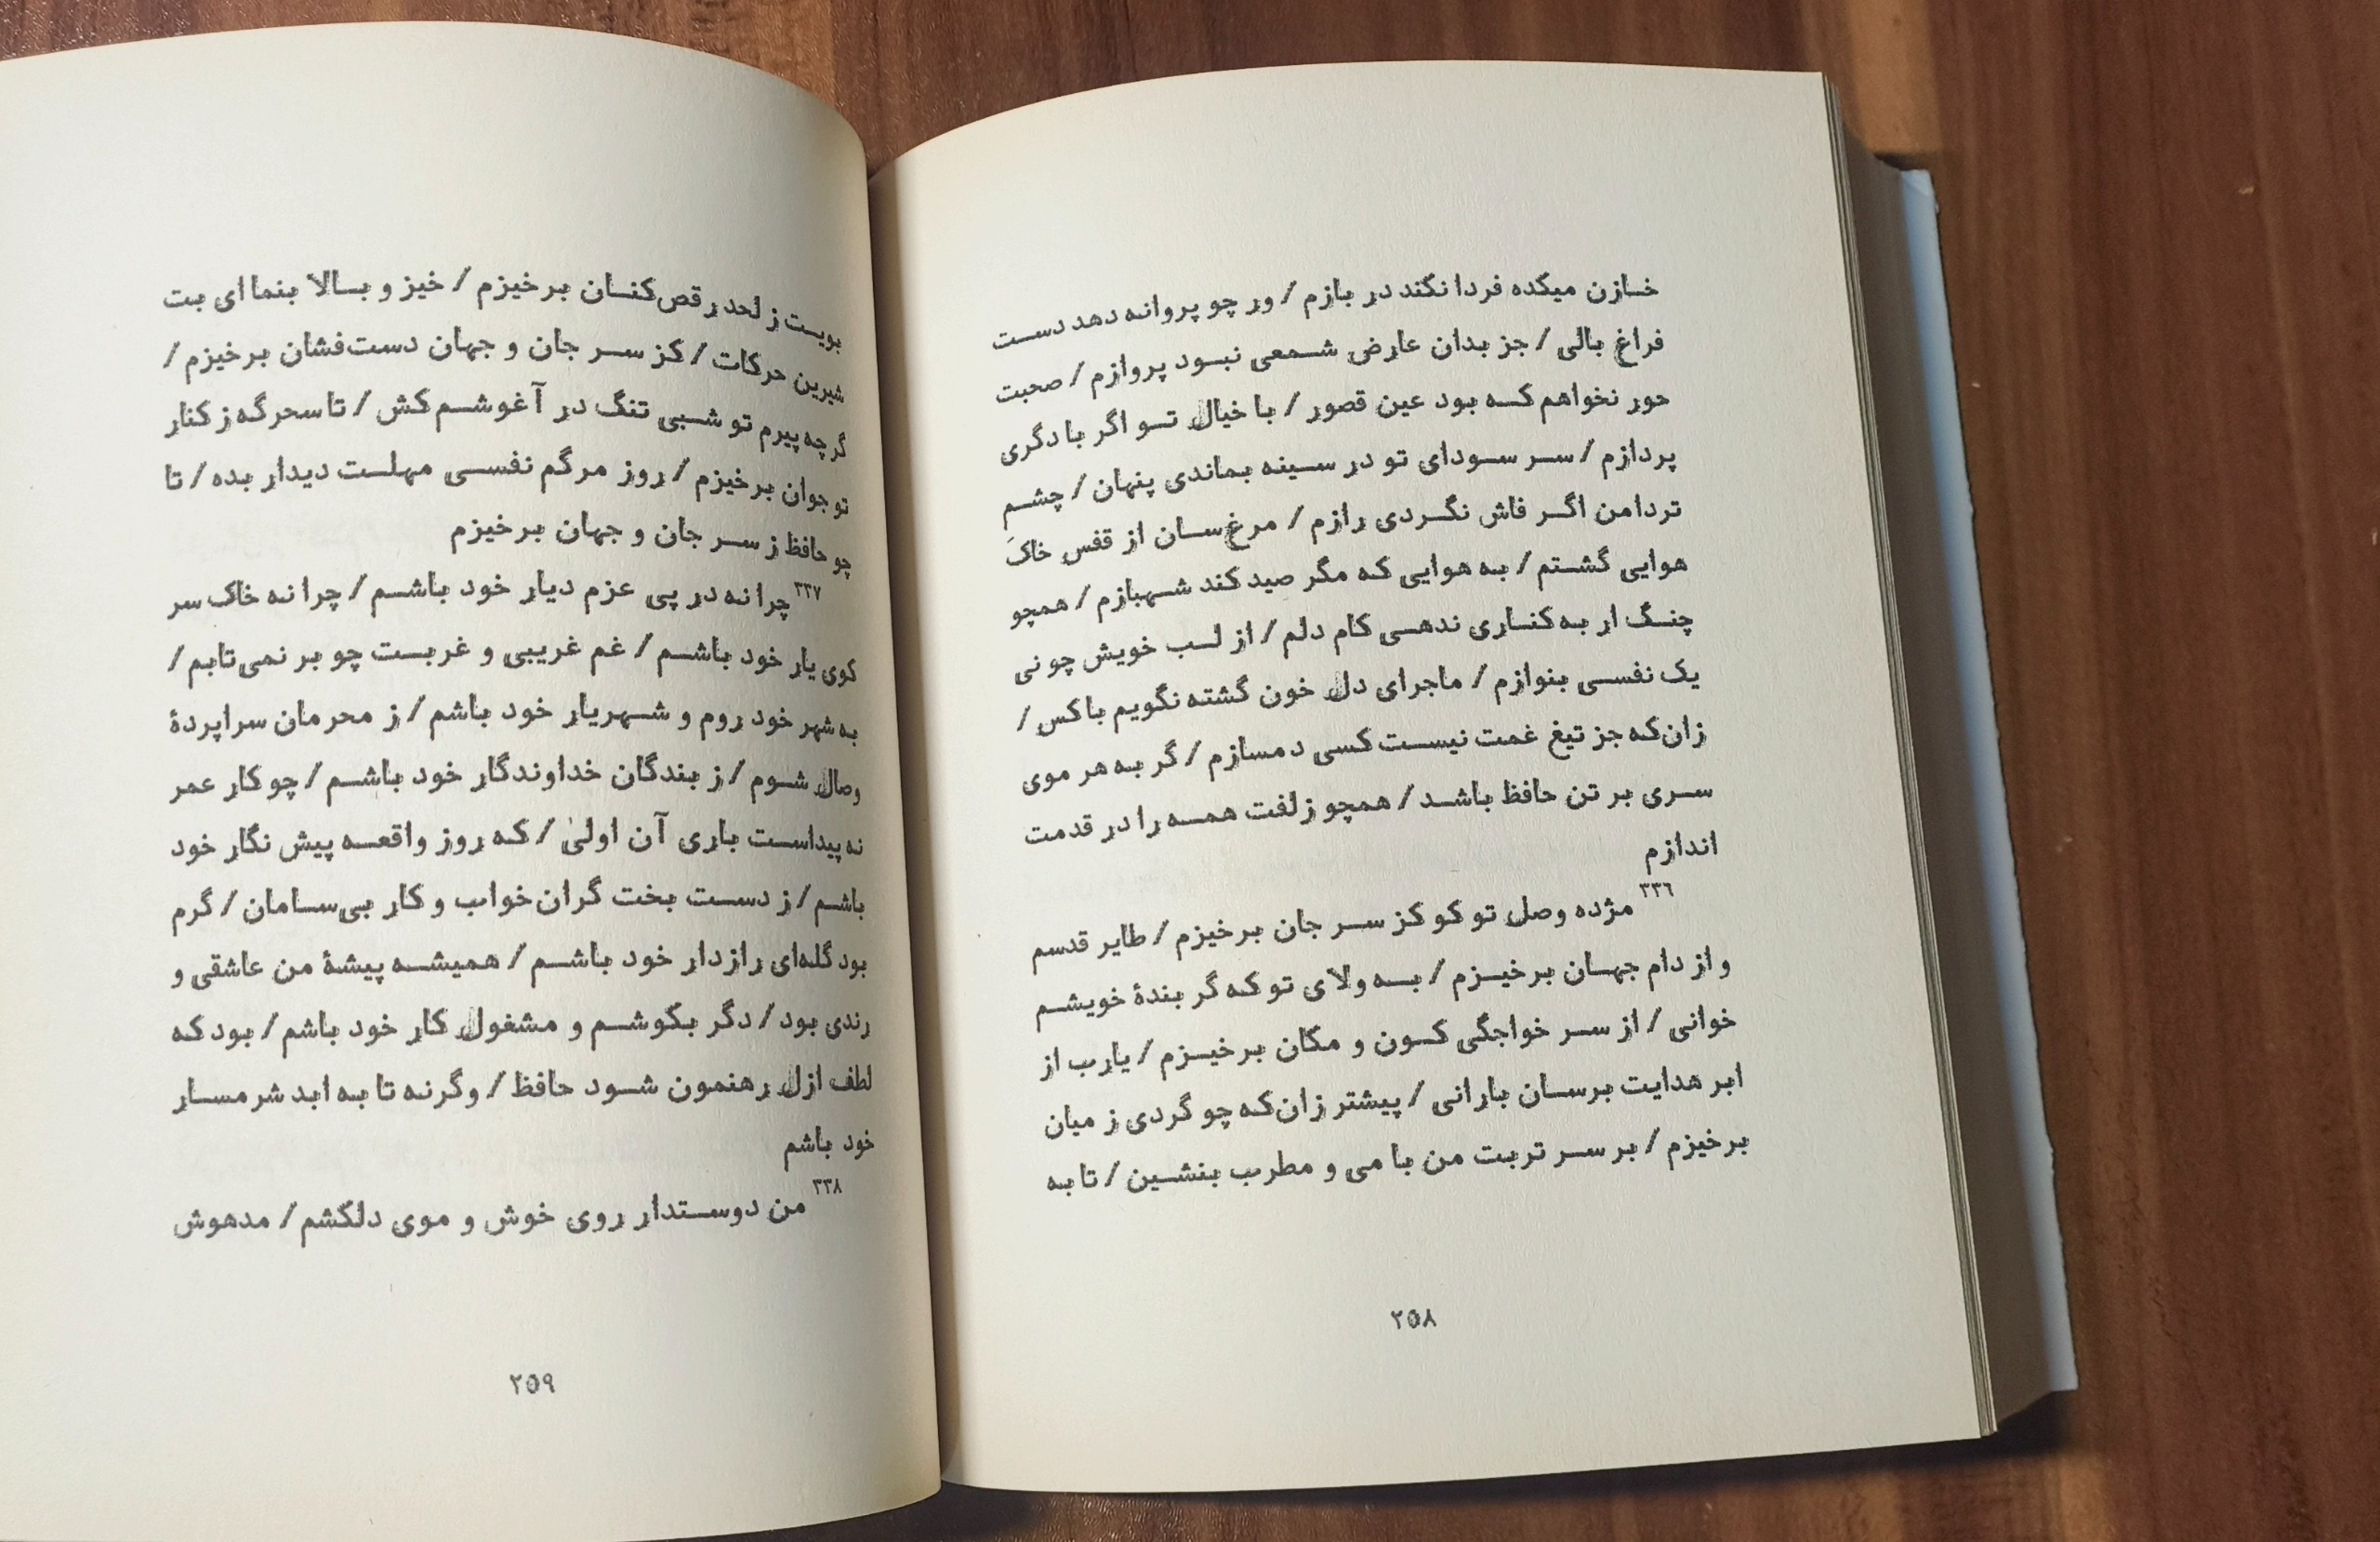 خازن میکده فردا نکند در بازم / ور چو پروانه دهد دست
فراغ بالی / جز بدان عارض شمعی نبود پروازم / صحبت
حور نخواهم که بود عین قصور / با خیال تو اگر با دگری
پردازم / سر سودای تو در سینه بماندی پنهان / چشم
تردامن اگر فاش نگردی رازم / مرغ‌سان از قفس خاک
هوایی گشتم / به هوایی که مگر صید کند شهبازم / همچو
چنگ ار به کناری ندهی کام دلم / از لب خویش چو نی
یک نفسی بنوازم / ماجرای دل خون گشته نگویم با کس /
زان‌که جز تیغ غمت نیست کسی دمسازم / گر به هر موی
سری بر تن حافظ باشد / همچو زلفت همه را در قدمت
اندازم
۳۳٦ مژده وصل تو کو کز سر جان برخیزم / طایر قدسم
و از دام جهان برخیزم / به ولای تو که گر بندهٔ خویشم
خوانی / از سر خواجگی کون و مکان برخیزم / یارب از
ابر هدایت برسان بارانی / پیشتر زان‌که چو گردی ز میان
برخیزم / بر سر تربت من با می و مطرب بنشین / تا به
۲۵۸
بویت ز لحد رقص‌کنان برخیزم / خیز و بالا بنما ای بت
شیرین حرکات / کز سر جان و جهان دست‌فشان برخیزم /
گرچه پیرم تو شبی تنگ در آغوشم کش / تا سحرگه ز کنار
تو جوان برخیزم / روز مرگم نفسی مهلت دیدار بده / تا
چو حافظ ز سر جان و جهان برخیزم
۳۳۷ چرا نه در پی عزم دیار خود باشم / چرا نه خاک سر
کوی یار خود باشم / غم غریبی و غربت چو بر نمی‌تابم /
به شهر خود روم و شهریار خود باشم / ز محرمان سراپردهٔ
وصال شوم / ز بندگان خداوندگار خود باشم / چو کار عمر
نه پیداست باری آن اولیٰ / که روز واقعه پیش نگار خود
باشم / ز دست بخت گران‌خواب و کار بی‌سامان / گرم
بود گله‌ای رازدار خود باشم / همیشه پیشهٔ من عاشقی و
رندی بود / دگر بکوشم و مشغول کار خود باشم / بود که
لطف ازل رهنمون شود حافظ / وگرنه تا به ابد شرمسار
خود باشم
۳۳۸ من دوستدار روی خوش و موی دلکشم / مدهوش
۲۵۹